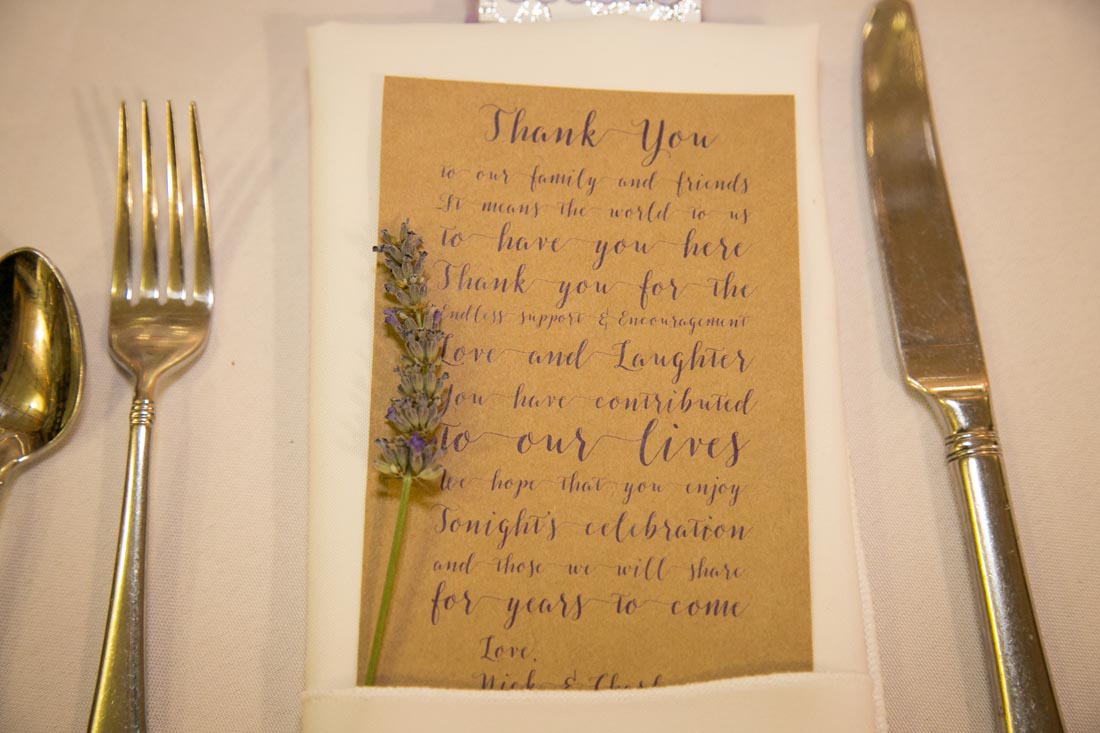 Thank You
to our family and friends
It means the world to us
to have you here
Thank you for the
Endless support & Encouragement
Love and Laughter
You have contributed
to our lives
We hope that you enjoy
Tonight's celebration
and those we will share
for years to come
Love,
Nick &